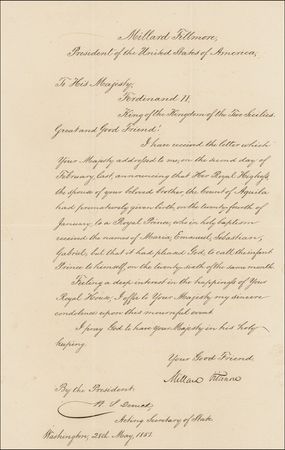 Millard Fillmore,
President of the United States of America,
To His Majesty,
Ferdinand II,
King of the Kingdom of the Two Sicilies.
Great and Good Friend:
I have received the letter which
Your Majesty addressed to me, on the second day of
February last, announcing that Her Royal Highness,
the spouse of your beloved brother the Count of Aquila
had prematurely given birth, on the twenty fourth of
January, to a Royal Prince, who in holy baptism
received the names of Maria, Emanuel, Sebastian,
Gabriel, but that it had pleased God, to call the infant
Prince to himself, on the twenty sixth of the same month.
Feeling a deep interest in the happiness of Your
Royal House, I offer to Your Majesty my sincere
condolence upon this mournful event.
I pray God to have Your Majesty in his holy
keeping.
Your Good Friend,
Millard Fillmore
By the President:
Acting Secretary of State
Washington, 28th May, 1851.